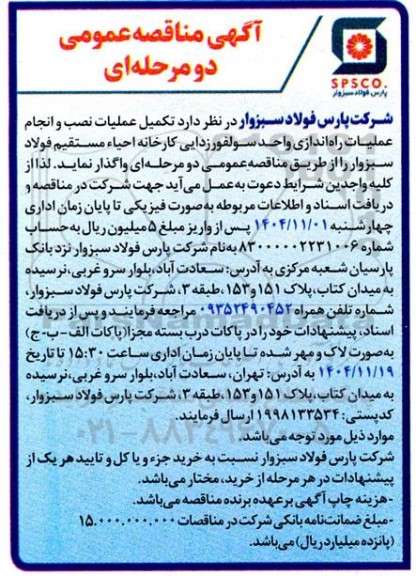 آگهی مناقصه عمومی
دو مرحله‌ای
SPSCO.
پارس فولاد سبزوار
شرکت پارس فولاد سبزوار در نظر دارد تکمیل عملیات نصب و انجام
عملیات راه‌اندازی واحد سولفورزدایی کارخانه احیاء مستقیم فولاد
سبزوار را از طریق مناقصه عمومی دو مرحله‌ای واگذار نماید. لذا از
کلیه واجدین شرایط دعوت به عمل می‌آید جهت شرکت در مناقصه و
دریافت اسناد و اطلاعات مربوطه به صورت فیزیکی تا پایان زمان اداری
چهارشنبه ۱۴۰۴/۱۱/۰۱ پس از واریز مبلغ ۵ میلیون ریال به حساب
شماره ۸۳۰۰۰۰۰۲۲۳۱۰۰۶ به نام شرکت پارس فولاد سبزوار نزد بانک
پارسیان شعبه مرکزی به آدرس: سعادت آباد، بلوار سرو غربی، نرسیده
به میدان کتاب، پلاک ۱۵۱ و ۱۵۳، طبقه ۳، شرکت پارس فولاد سبزوار،
شماره تلفن همراه ۰۹۳۵۲۴۹۰۴۵۲ مراجعه فرمایند و پس از دریافت
اسناد، پیشنهادات خود را در پاکات درب بسته مجزا (پاکات الف-ب-ج)
به صورت لاک و مهر شده تا پایان زمان اداری ساعت ۱۵:۳۰ تا تاریخ
۱۴۰۴/۱۱/۱۹ به آدرس: تهران، سعادت آباد، بلوار سرو غربی، نرسیده
به میدان کتاب، پلاک ۱۵۱ و ۱۵۳، طبقه ۳، شرکت پارس فولاد سبزوار،
کدپستی: ۱۹۹۸۱۳۳۵۳۴ ارسال فرمایند.
موارد ذیل مورد توجه می‌باشد.
شرکت پارس فولاد سبزوار نسبت به خرید جزء و یا کل و تایید هر یک از
پیشنهادات در هر مرحله از خرید، مختار می‌باشد.
-هزینه چاپ آگهی بر عهده برنده مناقصه می‌باشد.
-مبلغ ضمانت‌نامه بانکی شرکت در مناقصات ۱۵.۰۰۰.۰۰۰.۰۰۰
(پانزده میلیارد ریال) می‌باشد.